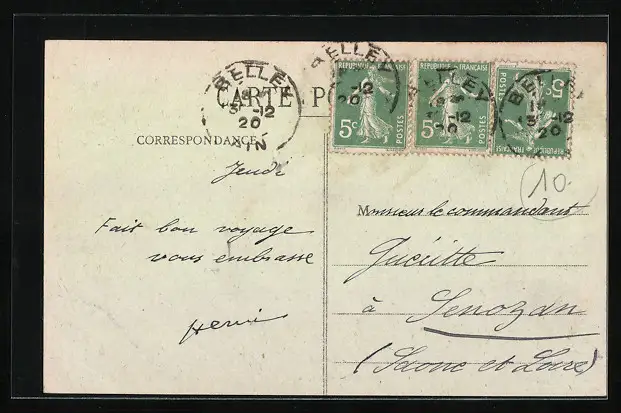 BELLEY
13 -12
20
AIN
BELLEY
-12
20
BELLEY
-12
20
BELLEY
13 -12
20
REPUBLIQUE FRANÇAISE
5c
POSTES
REPUBLIQUE FRANÇAISE
5c
POSTES
REPUBLIQUE FRANÇAISE
5c
POSTES
CARTE P
CORRESPONDANCE
Jeudi
Fait bon voyage
vous embrasse
Henri
10.
Monsieur le commandant
à Senozan
(Saone et Loire)